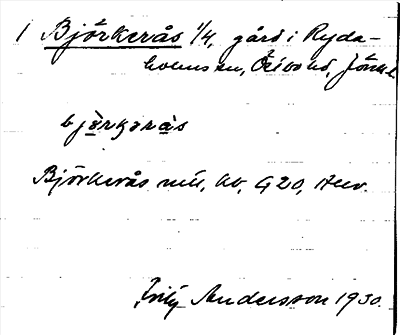 1 Björkerås 1/4, gård i Ryda-
holms sn, Östbo hd, Jönk. l.
björkərås
Björkerås ntl, kv, 920,
Fritz Andersson 1930.